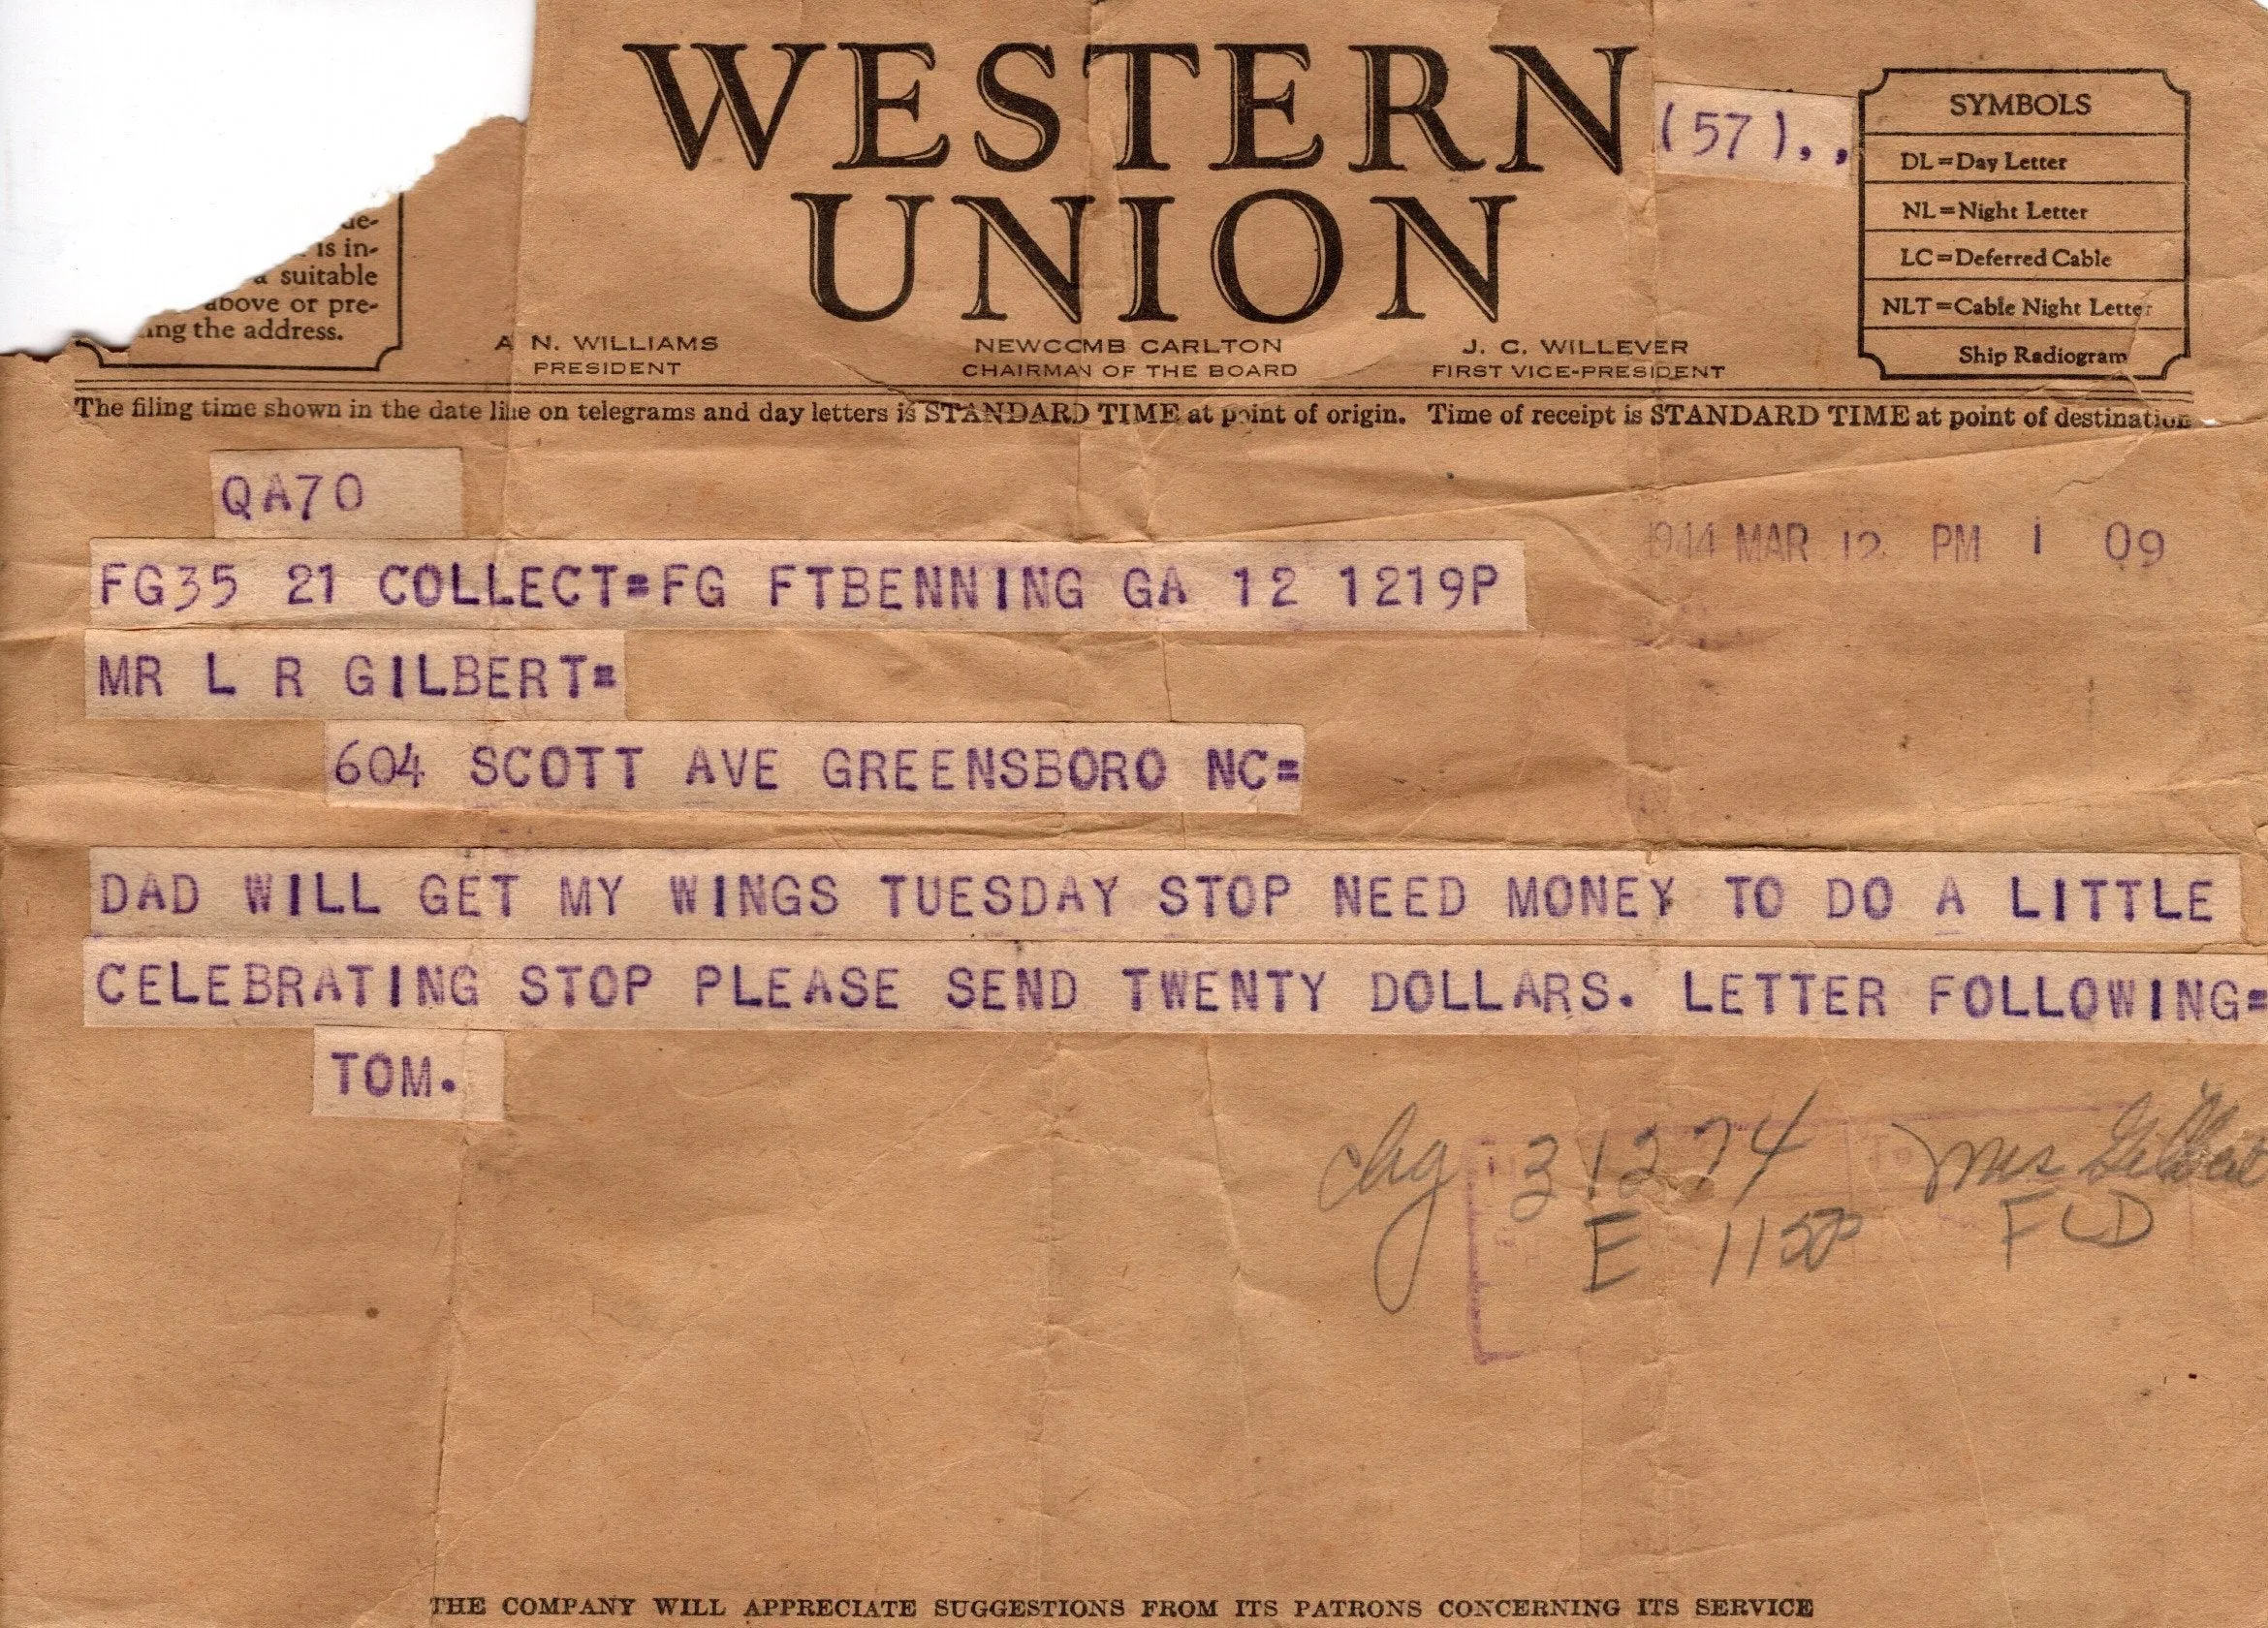 WESTERN
UNION
(57)..
SYMBOLS
DL=Day Letter
NL=Night Letter
LC=Deferred Cable
NLT=Cable Night Letter
Ship Radiogram
is in-
suitable
above or pre-
the address.
A N. WILLIAMS
PRESIDENT
NEWCOMB CARLTON
CHAIRMAN OF THE BOARD
J. C. WILLEVER
FIRST VICE-PRESIDENT
The filing time shown in the date line on telegrams and day letters is STANDARD TIME at point of origin. Time of receipt is STANDARD TIME at point of destination
QA70
1944 MAR 12 PM 1 09
FG35 21 COLLECT=FG FTBENNING GA 12 1219P
MR L R GILBERT=
604 SCOTT AVE GREENSBORO NC=
DAD WILL GET MY WINGS TUESDAY STOP NEED MONEY TO DO A LITTLE
CELEBRATING STOP PLEASE SEND TWENTY DOLLARS. LETTER FOLLOWING=
TOM.
chg 31274 Mrs Gilbert
E FLD
THE COMPANY WILL APPRECIATE SUGGESTIONS FROM ITS PATRONS CONCERNING ITS SERVICE